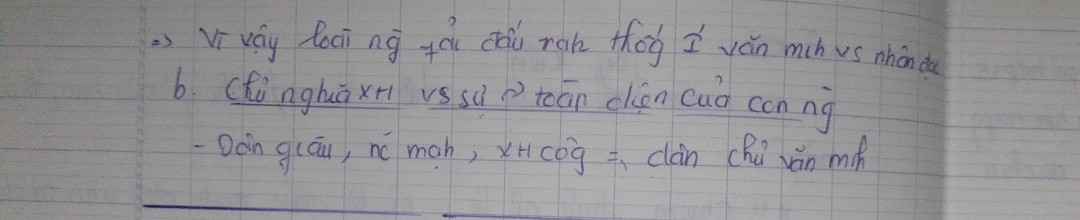 => Vì vậy loài ng̃ fải đấu trah thốg I văn mih vs nhân đạo
b. Chủ nghuã XH vs sự P toàn diện cuả con ng̃
- Dân giàu, nc mạh, XH côg =, dân chủ văn mh